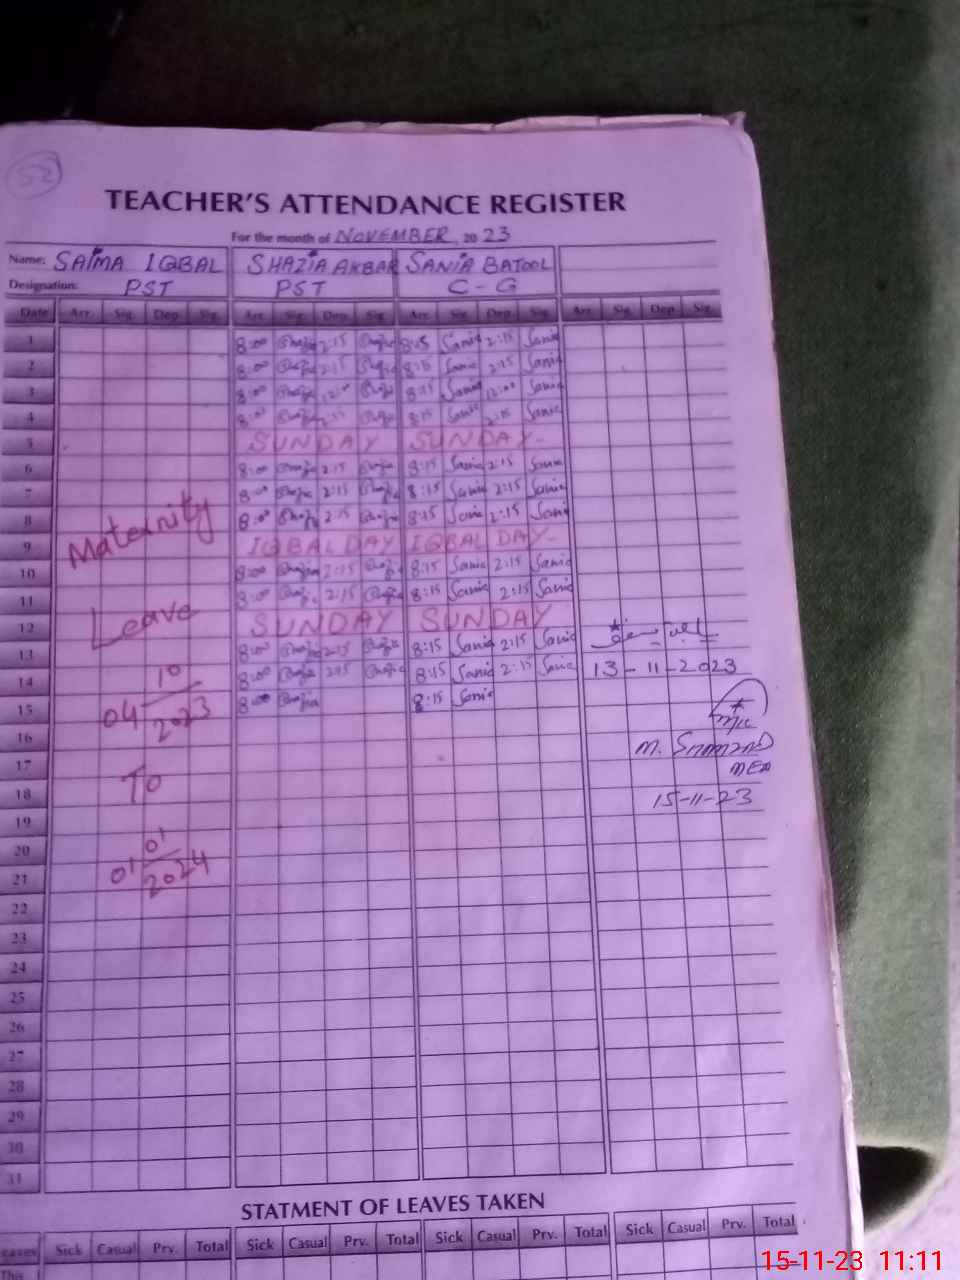 52
TEACHER'S ATTENDANCE REGISTER
For the month of NOVEMBER 2023
Name: SAIMA IQBAL SHAZIA AKBAR SANIA BATOOL
Designation: PST PST C-G
Date Arr. Sig. Dep. Sig. Arr. Sig. Dep. Sig. Arr. Sig. Dep. Sig. Arr. Sig. Dep. Sig.
1 8:00 Shazia 2:15 Shazia 8:15 Sania 2:15 Sania
2 8:00 Shazia 2:15 Shazia 8:15 Sania 2:15 Sania
3 8:00 Shazia 12:00 Shazia 8:15 Sania 12:00 Sania
4 8:00 Shazia 2:15 Shazia 8:15 Sania 2:15 Sania
5 SUNDAY SUNDAY-
6 8:00 Shazia 2:15 Shazia 8:15 Sania 2:15 Sania
7 8:00 Shazia 2:15 Shazia 8:15 Sania 2:15 Sania
8 Maternity 8:00 Shazia 2:15 Shazia 8:15 Sania 2:15 Sania
9 IQBAL DAY IQBAL DAY-
10 8:00 Shazia 2:15 Shazia 8:15 Sania 2:15 Sania
11 Leave 8:00 Shazia 2:15 Shazia 8:15 Sania 2:15 Sania
12 SUNDAY SUNDAY
13 8:00 Shazia 2:15 Shazia 8:15 Sania 2:15 Sania
14 04/10/2023 8:00 Shazia 2:15 Shazia 8:15 Sania 2:15 Sania 13-11-2023
15 8:00 Shazia 8:15 Sania
16
17 To M.
18 MEA
19 15-11-23
20 01/01/2024
21
22
23
24
25
26
27
28
29
30
31
STATMENT OF LEAVES TAKEN
Leaves Sick Casual Prv. Total Sick Casual Prv. Total Sick Casual Prv. Total Sick Casual Prv. Total
This
15-11-23 11:11